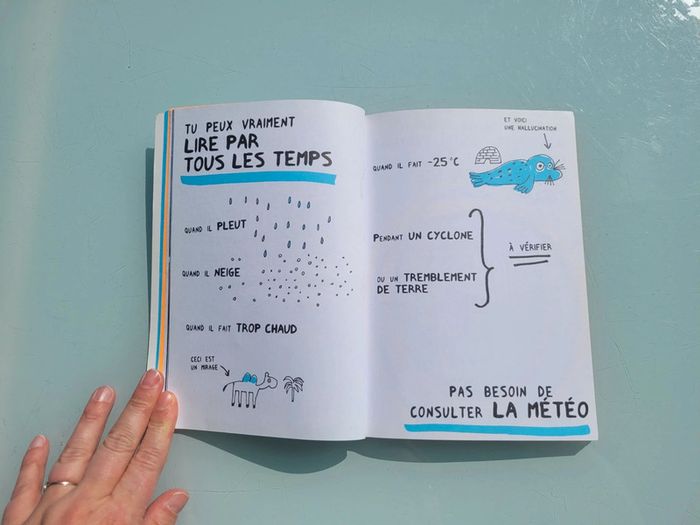 TU PEUX VRAIMENT
LIRE PAR
TOUS LES TEMPS
QUAND IL PLEUT
QUAND IL NEIGE
QUAND IL FAIT TROP CHAUD
CECI EST
UN MIRAGE
ET VOICI
UNE HALLUCINATION
QUAND IL FAIT -25°C
PENDANT UN CYCLONE
À VÉRIFIER
OU UN TREMBLEMENT
DE TERRE
PAS BESOIN DE
CONSULTER LA MÉTÉO